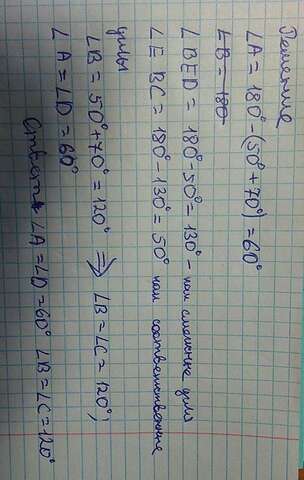 Решение
∠A = 180° - (50° + 70°) = 60°
∠B = 180
∠BED = 180° - 50° = 130° - как смежные углы
∠EBC = 180° - 130° = 50° как соответственные
углы
∠B = 50° + 70° = 120° ⇒ ∠B = ∠C = 120°;
∠A = ∠D = 60°
Ответ: ∠A = ∠D = 60° ∠B = ∠C = 120°